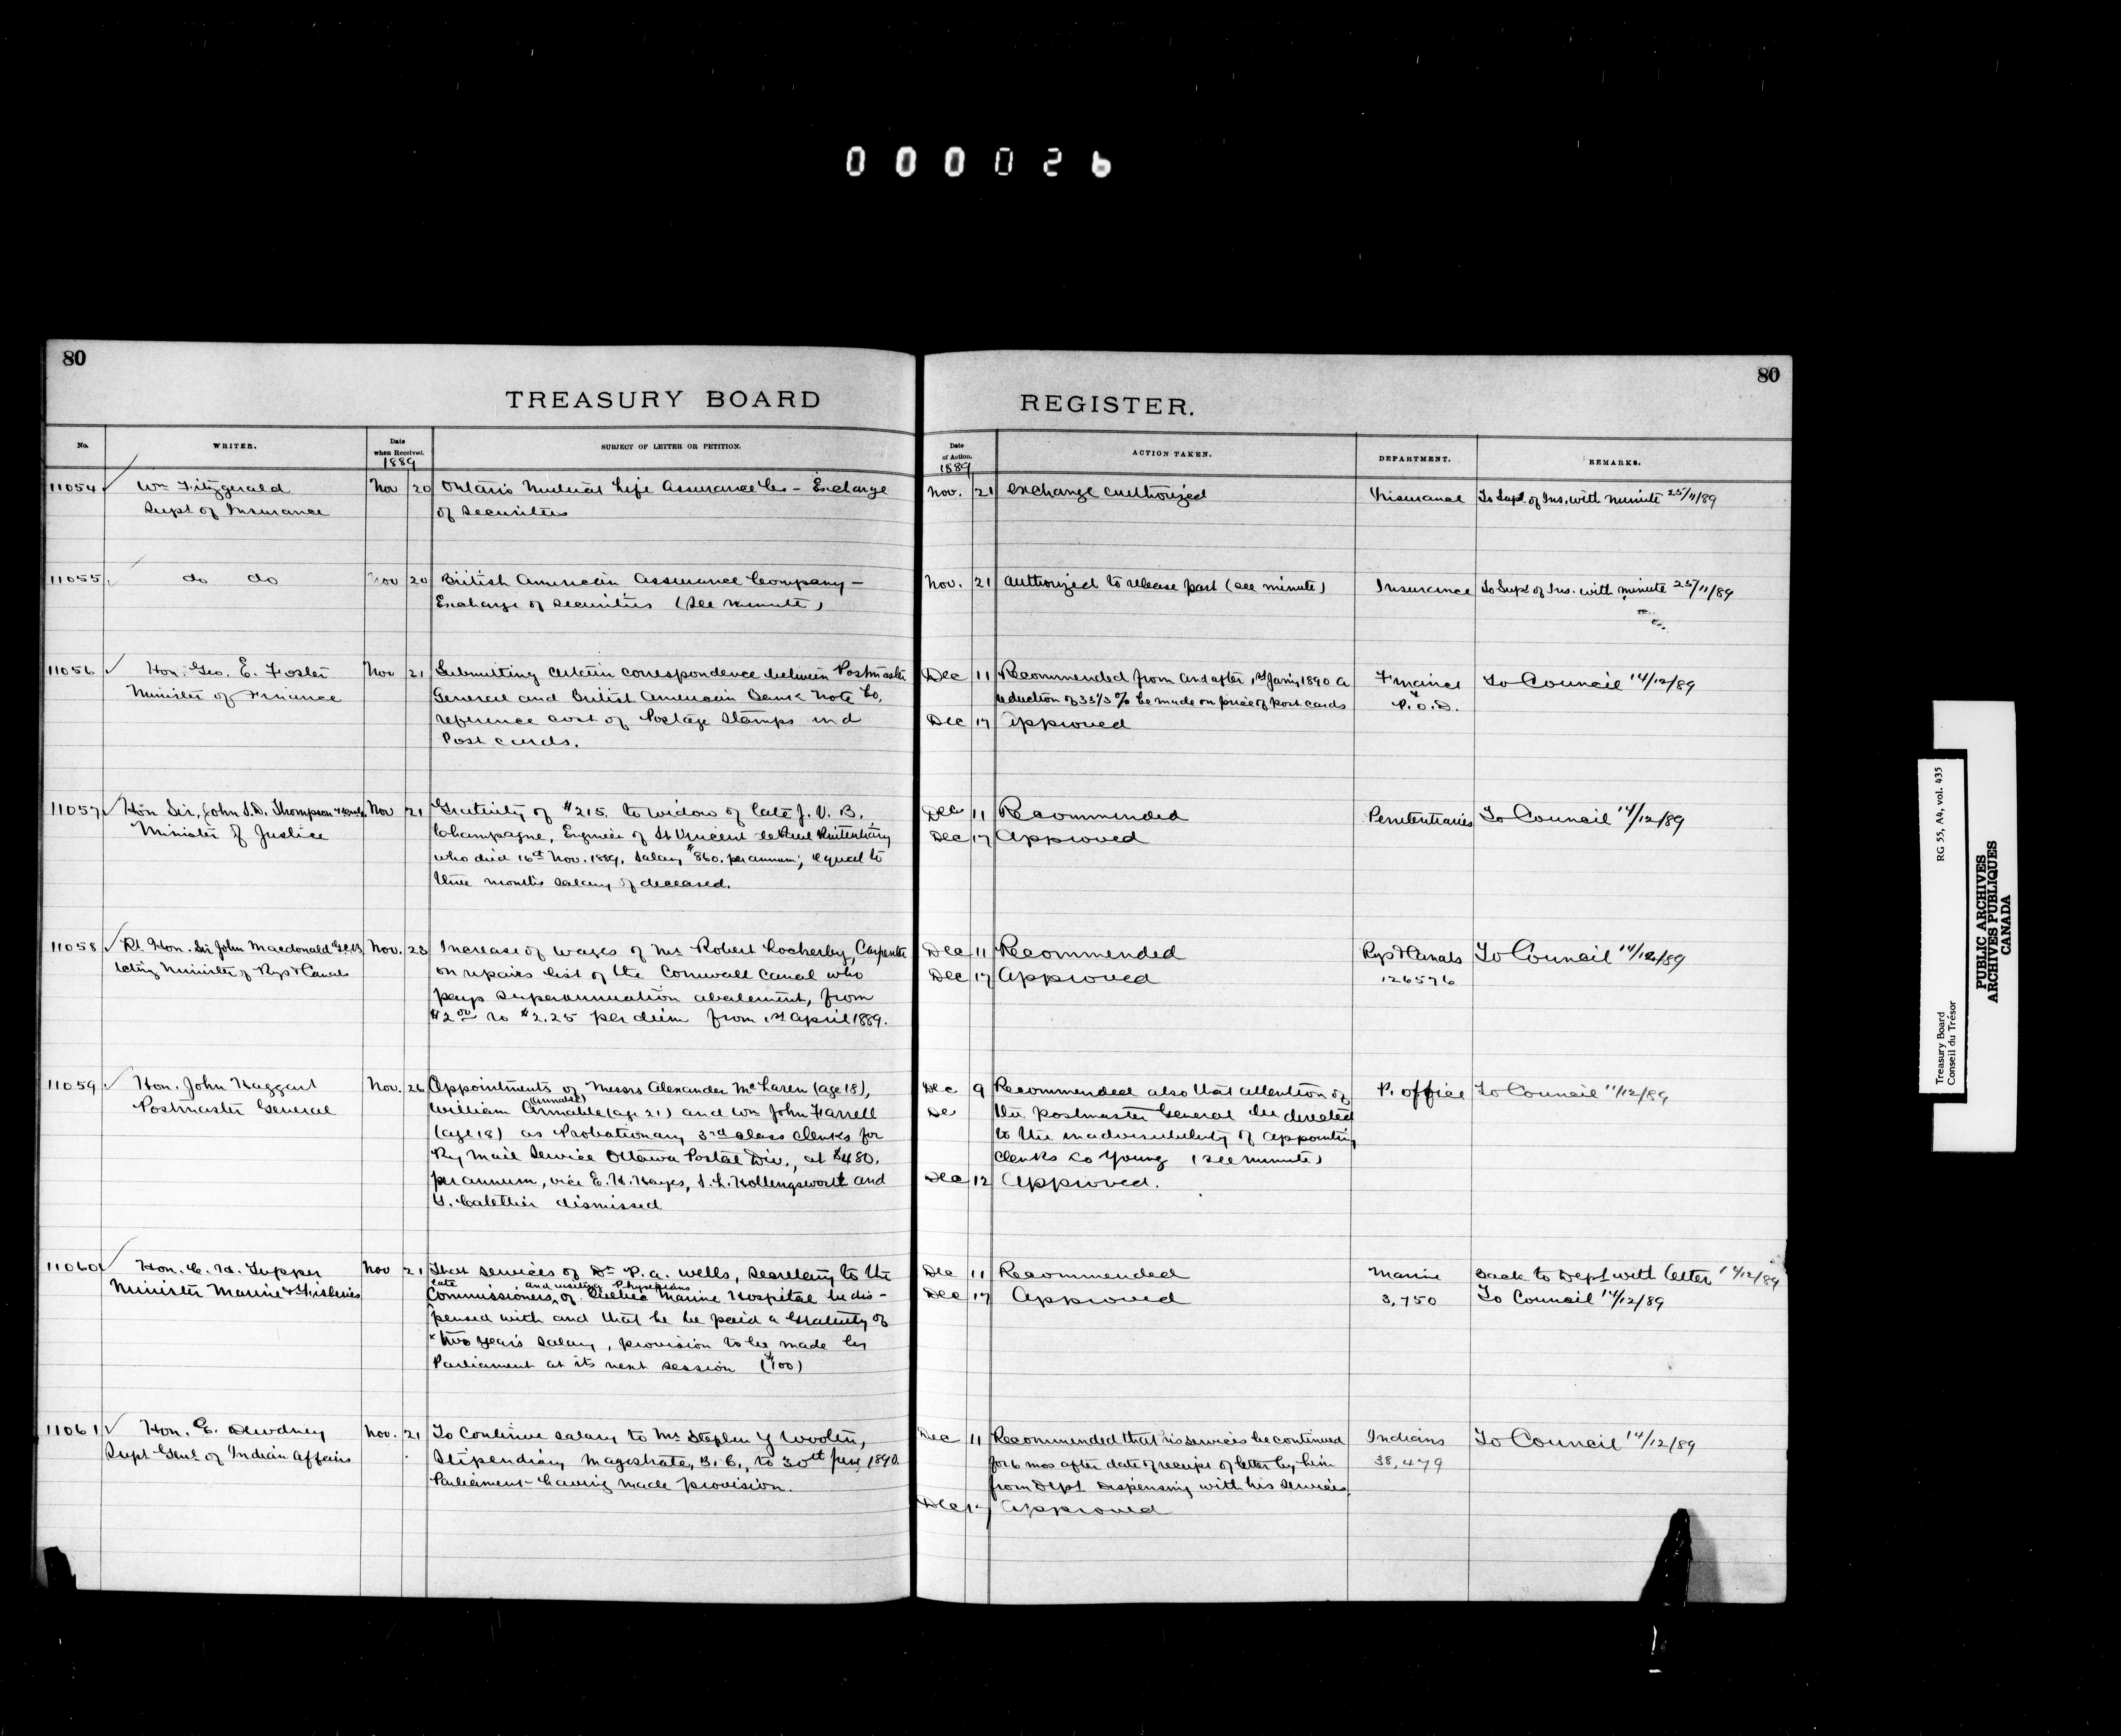 000026
80
80
TREASURY BOARD
REGISTER.
No.
WRITER.
Date when Received.
1889
SUBJECT OF LETTER OR PETITION.
Date of Action.
1889
ACTION TAKEN.
DEPARTMENT.
REMARKS.
11054 Wm Fitzgerald Nov 20 Ontario Mutual Life Assurance Co - Exchange Nov. 21 exchange authorized Insurance To Supt of Ins. with minute 25/11/89
Supt of Insurance of Securities
11055 do do Nov 20 British American Assurance Company - Nov. 21 authorized to release part (see minute) Insurance To Supt of Ins. with minute 25/11/89
Exchange of securities (see minute)
11056 Hon. Geo. E. Foster Nov 21 Submitting certain correspondence between Postmaster Dec 11 Recommended from and after 1st Jan'y 1890 a Finance To Council 14/12/89
Minister of Finance General and British American Bank Note Co. reduction of 33 1/3 % be made on price of post cards P.O.D.
reference cost of Postage Stamps and Dec 17 Approved
Post cards.
11057 Hon Sir John S.D. Thompson Nov 21 Gratuity of $215. to widow of late J. V. B. Dec 11 Recommended Penitentiaries To Council 14/12/89
Minister of Justice Champagne, Engineer of St Vincent de Paul Penitentiary Dec 17 Approved
who died 16th Nov. 1889, Salary $860. per annum; equal to
three months salary of deceased.
11058 Rt. Hon. Sir John Macdonald G.C.B. Nov. 23 Increase of wages of Mr Robert Lockerby, Carpenter Dec 11 Recommended Rys & Canals To Council 14/12/89
Acting Minister of Rys & Canals on repairs list of the Cornwall Canal who Dec 17 Approved 126576
pays superannuation abatement, from
$2.00 to $2.25 per diem from 1st April 1889.
11059 Hon. John Haggart Nov. 26 Appointments of Messrs Alexander McLaren (age 18), Dec 9 Recommended also that attention of P. office To Council 11/12/89
Postmaster General William Armable (age 21) and Wm John Farrell De the Postmaster General be directed
(age 18) as Probationary 3rd class clerks for to the inadvisability of appointing
Ry Mail Service Ottawa Postal Div., at $480. clerks so young (see minute)
per annum, vice E. H. Hayes, S. L. Hollingsworth and Dec 12 Approved.
dismissed
11060 Hon. C. H. Tupper Nov 21 That services of Dr P. A. Wells, Secretary to the Dec 11 Recommended Marine Back to Dept with letter 14/12/89
Minister Marine & Fisheries late Commissioners, and visiting Physicians of Quebec Marine Hospital be dis- Dec 17 Approved 3,750 To Council 14/12/89
pensed with and that he be paid a gratuity of
two years salary, provision to be made by
Parliament at its next session ($100)
11061 Hon. E. Dewdney Nov. 21 To continue salary to Mr Stephen Y Wooten, Dec 11 Recommended that his services be continued Indians To Council 14/12/89
Supt Genl of Indian Affairs Stipendiary Magistrate, B.C., to 30th June 1890. for 6 mos after date of receipt of letter by him 38,479
Parliament having made provision. from Dept Dispensing with his services.
Dec 17 Approved
RG 55, A4, vol. 435
Treasury Board
Conseil du Trésor
PUBLIC ARCHIVES
ARCHIVES PUBLIQUES
CANADA